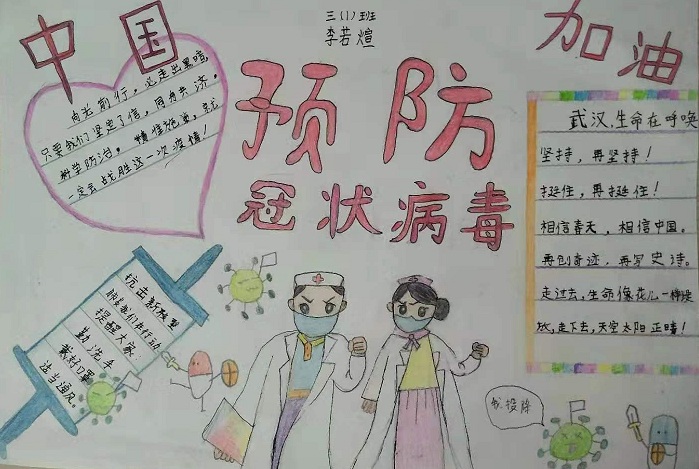 中国
三(1)班
李若煊
加油
预防
冠状病毒
向光前行，必走出黑暗
只要我们坚定了信，同舟共济。
科学防治。精准施策，就
一定会战胜这一次疫情！
武汉，生命在呼唤
坚持，再坚持！
挺住，再挺住！
相信春天，相信中国。
再创奇迹，再写史诗。
走过去，生命像花儿一样绽
放，走下去，天空太阳正晴！
抗击新型
肺炎我们在行动
提醒大家
勤洗手
戴好口罩
我投降